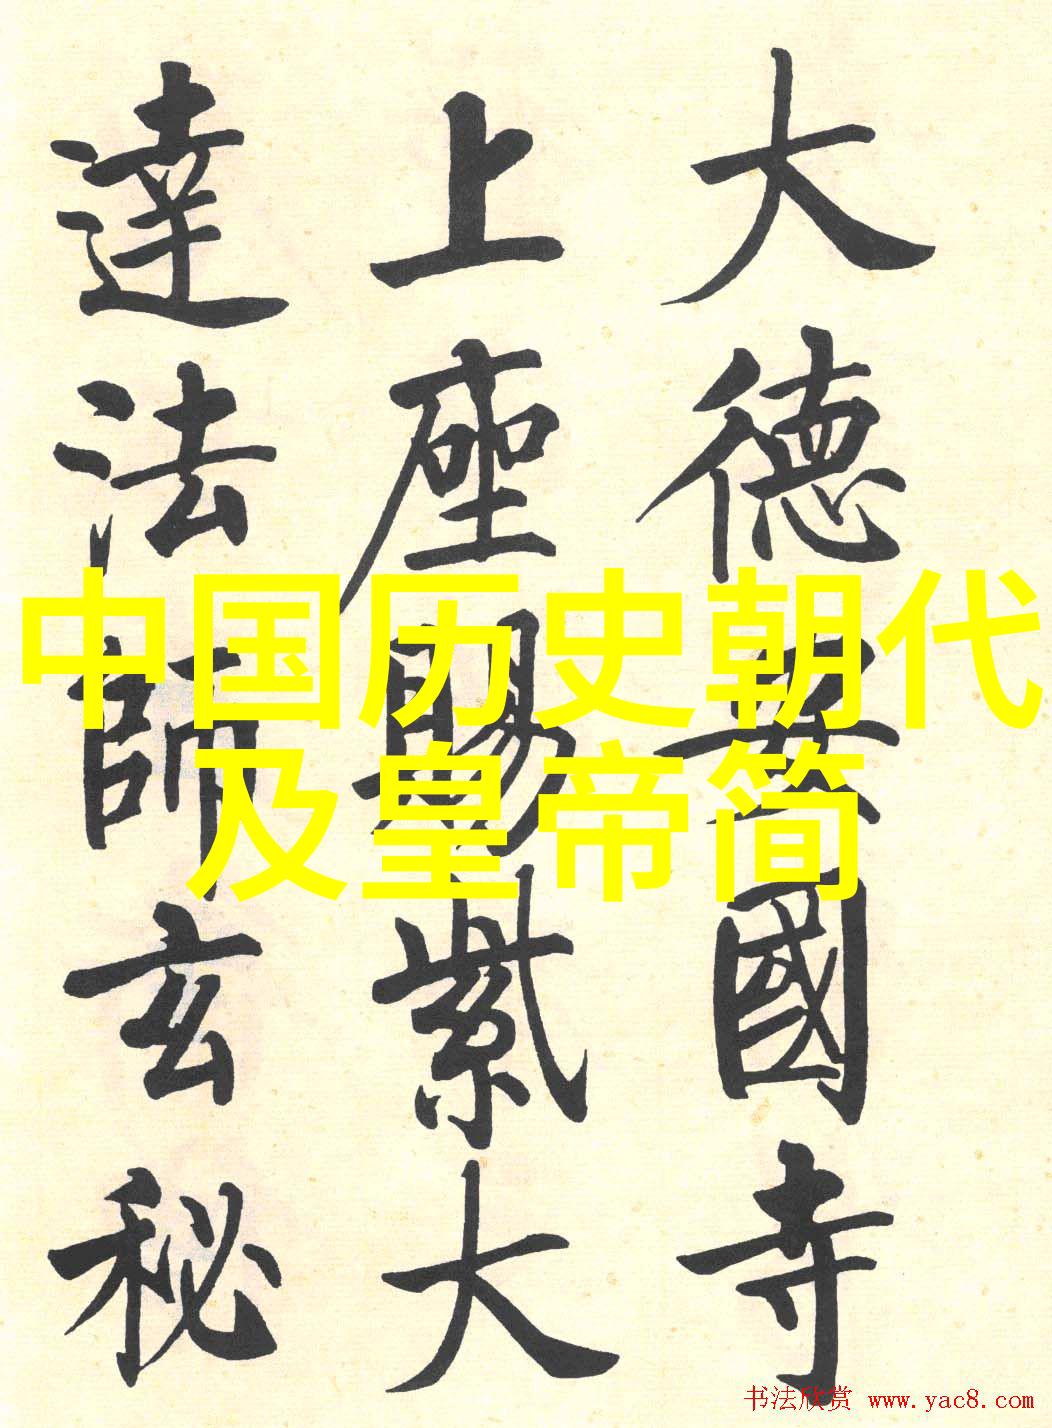 大德安國寺
上座賜紫大
達法師玄秘
中国历史朝代
及皇帝简
书法欣赏 www.yac8.com